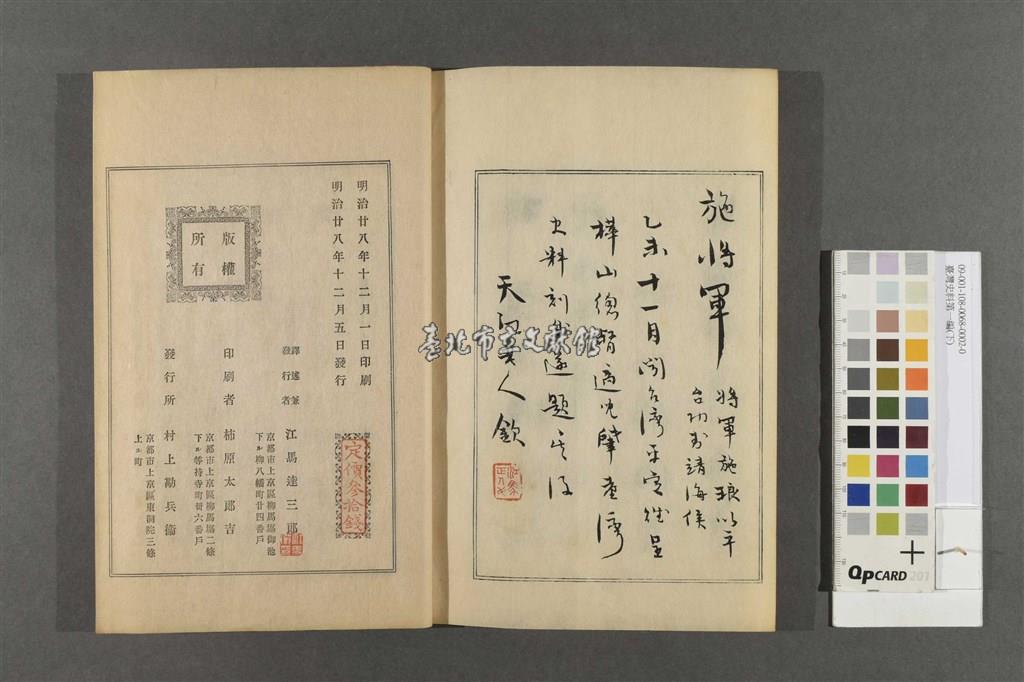 施將軍
將軍施琅以平
台功封靖海侯
乙未十一月聞台湾平定紱呈
樺山總督適
史料刻遂題
天
人欽
臺北市立文獻館
明治廿八年十二月一日印刷
明治廿八年十二月五日發行
版權
所有
譯述兼
發行者
江馬達三郎
京都市上京區柳馬場御池
下ル柳八幡町廿四番戶
印刷者
柿原太郎吉
京都市上京區柳馬場二條
下ル等持寺町廿六番戶
發行所
村上勘兵衞
京都市上京區東洞院三條
上ル町
定價參拾錢
09-001-108-0068-0002-0
臺灣史料第一編(下)
QPCARD 201